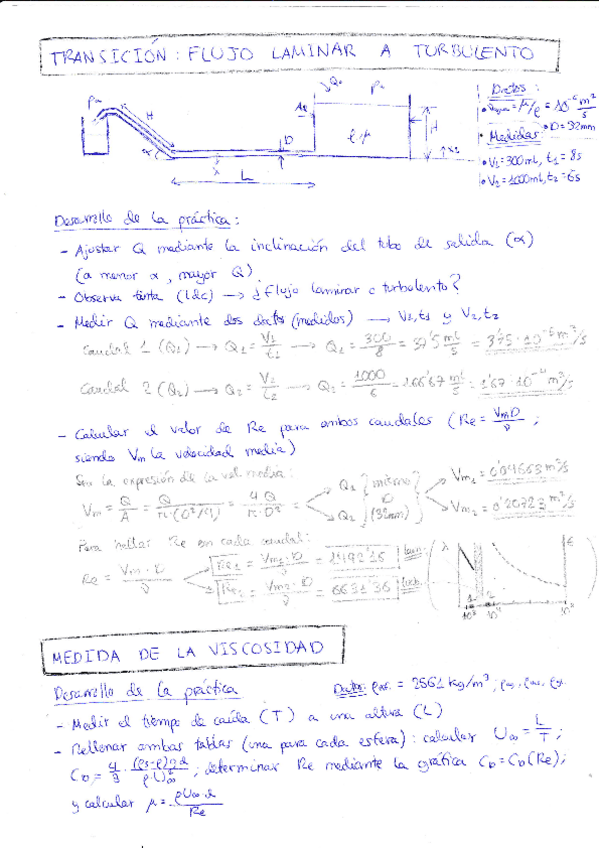 TRANSICIÓN: FLUJO LAMINAR A TURBULENTO
Datos:
= μ/ρ = 10⁻⁶ m²/s
• D = 32mm
• Medidas:
• V₁ = 300mL, t₁ = 8s
• V₂ = 1000mL, t₂ = 6s
Pa
H
α
L
D
Pa
H
Desarrollo de la práctica:
- Ajustar Q mediante la inclinación del tubo de salida (α)
(a menor α, mayor Q)
- Observa tinta (ldc) → ¿Flujo laminar o turbulento?
- Medir Q mediante dos datos (medidos) → V₁,t₁ y V₂,t₂
Caudal 1 (Q₁) → Q₁ = V₁/t₁ → Q₁ = 300/8 = 37'5 mL/s = 3'75·10⁻⁶ m³/s
Caudal 2 (Q₂) → Q₂ = V₂/t₂ → Q₂ = 1000/6 = 166'67 mL/s = 1'67·10⁻⁴ m³/s
- Calcular el valor de Re para ambos caudales (Re = VmD/ν ;
siendo Vm la velocidad media)
Sea la expresión de la vel. media:
Vm = Q/A = Q/(π·(D²/4)) = 4Q/(π·D²)
Q₁ Q₂ mismo D (32mm)
Vm₁ = 0'04663 m³/s
Vm₂ = 0'20723 m³/s
Para hallar Re en cada caudal:
Re = Vm·D/ν
Re₁ = Vm₁·D/ν = 1492'15 lam.
Re₂ = Vm₂·D/ν = 6631'36 turb.
λ
ε
10³ 10⁴ 10⁸
MEDIDA DE LA VISCOSIDAD
Desarrollo de la práctica
Datos: = 2561 kg/m³;
- Medir el tiempo de caída (T) a una altura (L)
- Rellenar ambas tablas (una para cada esfera): calcular U∞ = L/T ;
C_D = 4/3 · (ρs-ρ)gd/(ρ·U∞²) ; determinar Re mediante la gráfica C_D = C_D(Re);
y calcular μ = ρU∞d/Re